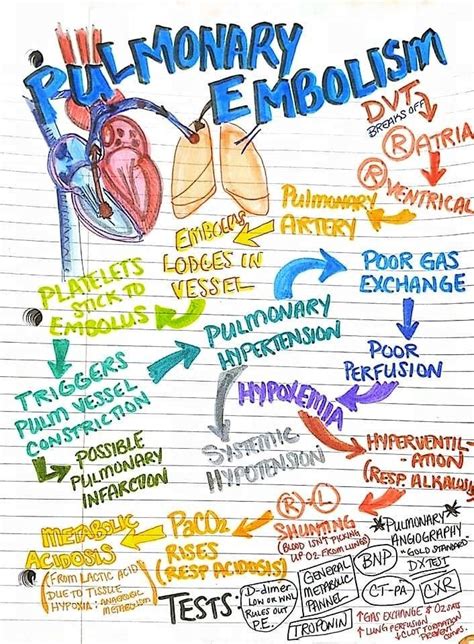 PULMONARY
EMBOLISM
DVT
BREAKS OFF
R ATRIA
R VENTRICAL
PULMONARY
ARTERY
EMBOLUS
LODGES IN
VESSEL
PLATELETS
STICK TO
EMBOLUS
TRIGGERS
PULM VESSEL
CONSTRICTION
POSSIBLE
PULMONARY
INFARCTION
PULMONARY
HYPERTENSION
POOR GAS
EXCHANGE
POOR
PERFUSION
HYPOXEMIA
SYSTEMIC
HYPOTENSION
HYPERVENTIL-
ATION
(RESP. ALKALOSIS)
R-L
SHUNTING
(BLOOD ISN'T PICKING
UP O2 FROM LUNGS)
PaCO2
RISES
(RESP ACIDOSIS)
METABOLIC
ACIDOSIS
(FROM LACTIC ACID
DUE TO TISSUE
HYPOXIA: ANAEROBIC
METABOLISM)
*PULMONARY*
ANGIOGRAPHY
"GOLD STANDARD"
DX TEST
TESTS:
D-dimer
LOW OR WNL
RULES OUT
P.E.
GENERAL
METABOLIC
PANNEL
TROPONIN
BNP
CT-PA
CXR
↑GAS EXCHANGE & O2 SATS
↑ LUNG PERFUSION
CLOT FORMATION